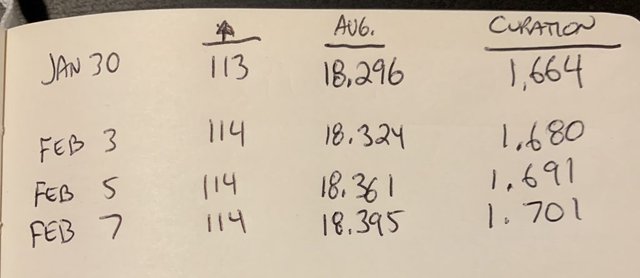 ↑ AUG. CURATION
JAN 30 113 18,296 1,664
FEB 3 114 18.324 1.680
FEB 5 114 18.361 1.691
FEB 7 114 18.395 1.701